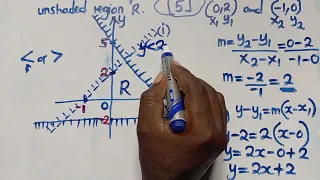 unshaded region R. [5] (0,2) and (-1,0)
x₁ y₁ x₂ y₂
y
(i)
5
y<2
2
R
-1
0
-2
m = y₂-y₁ = 0-2
x₂-x₁ -1-0
m = -2 = 2
-1
y-y₁=m(x-x₁)
y-2=2(x-0)
y=2x-0+2
y=2x+2